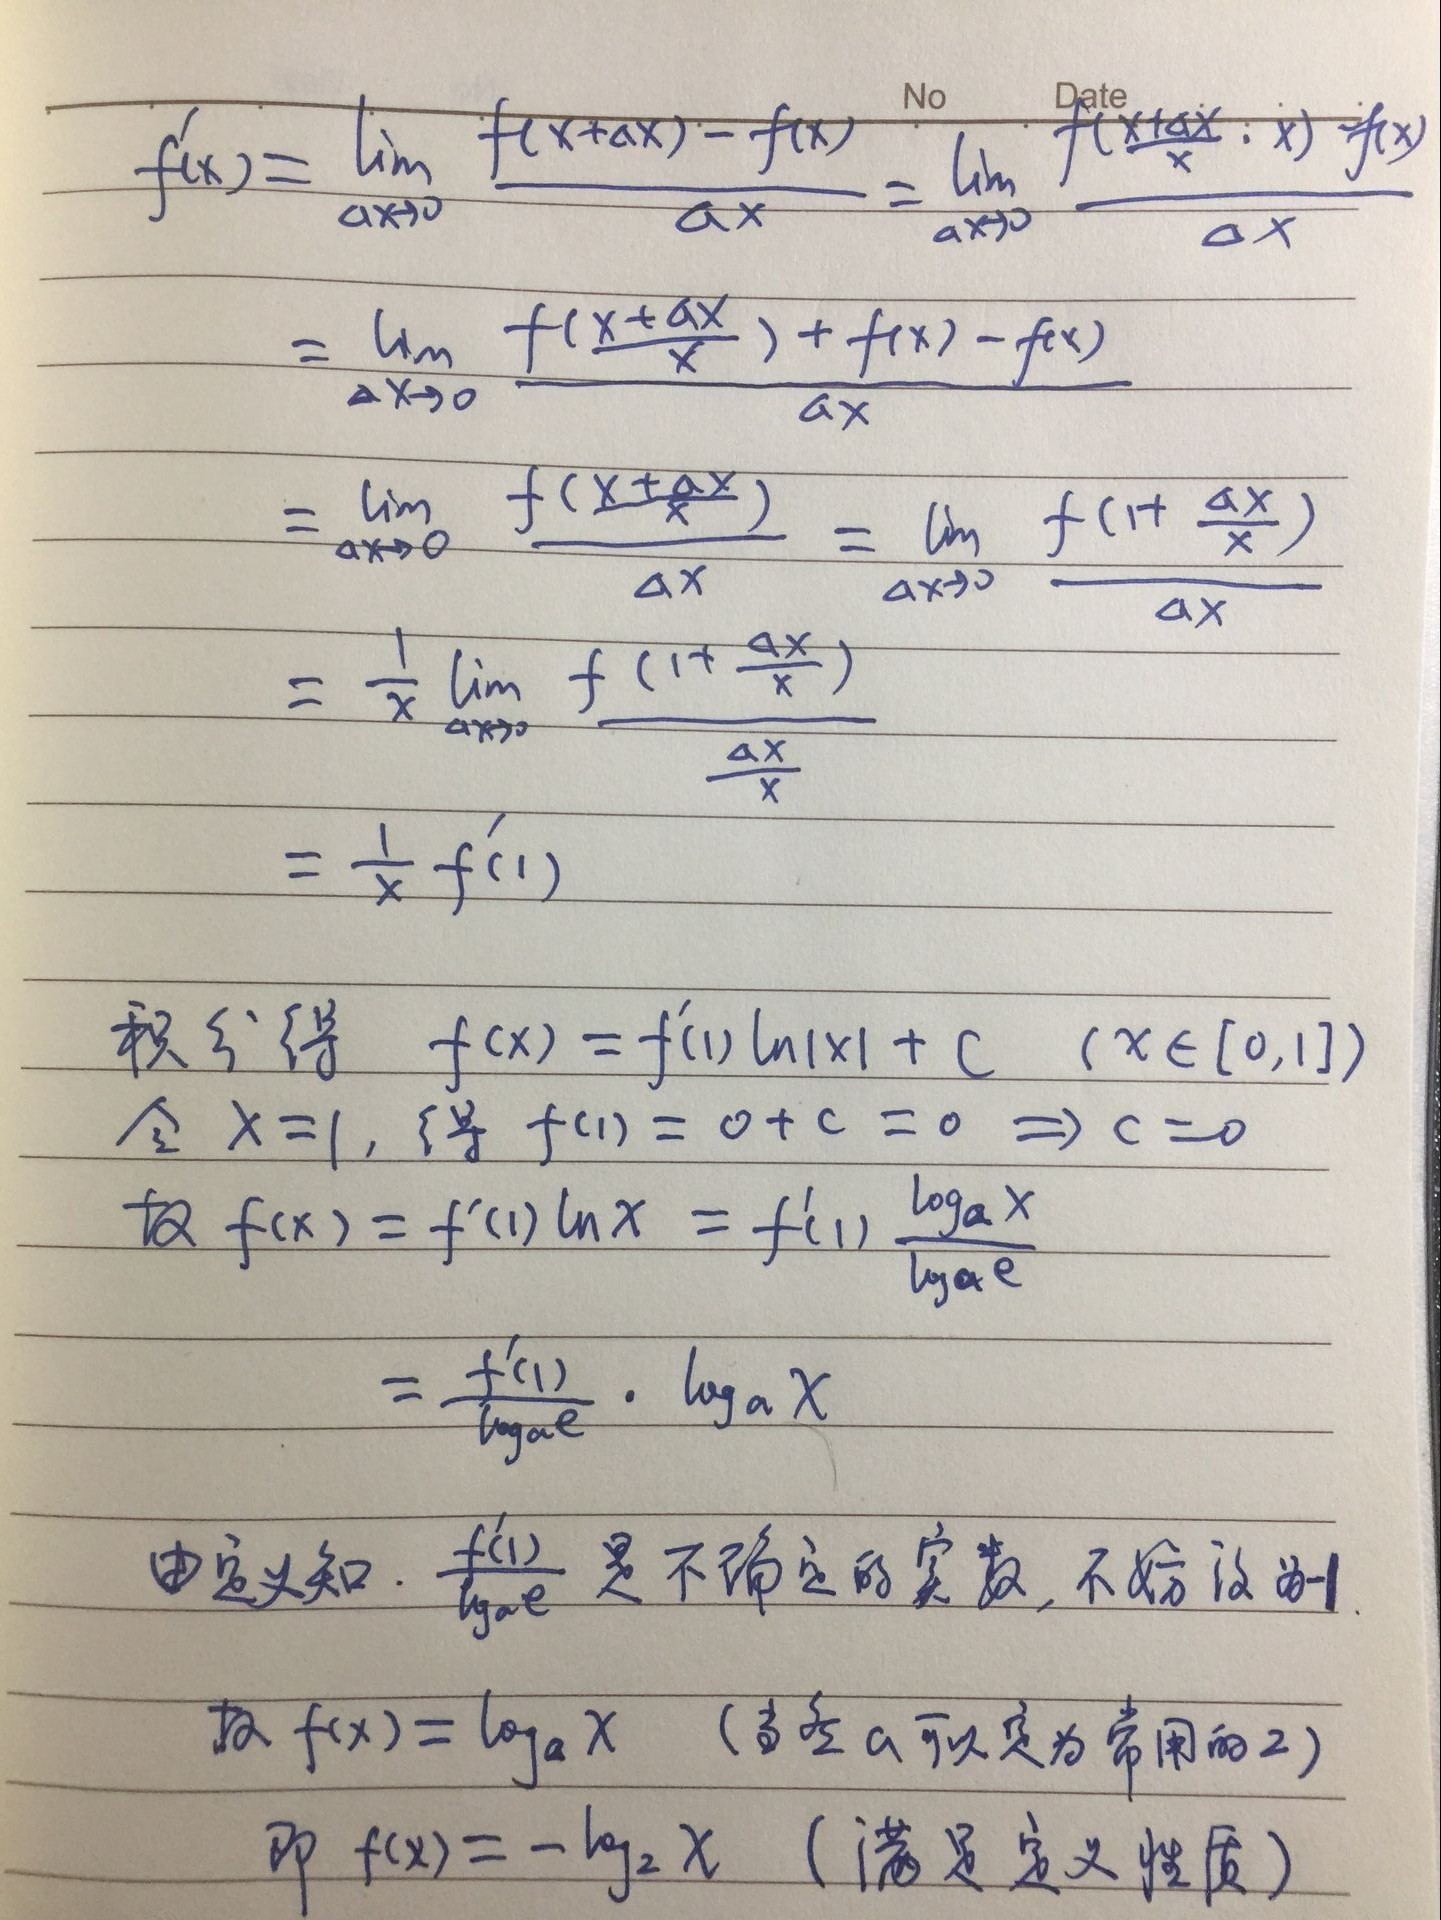 No Date
f'(x) = lim_{Δx→0} \frac{f(x+Δx) - f(x)}{Δx} = lim_{Δx→0} \frac{f(\frac{x+Δx}{x} · x) - f(x)}{Δx}
= lim_{Δx→0} \frac{f(\frac{x+Δx}{x}) + f(x) - f(x)}{Δx}
= lim_{Δx→0} \frac{f(\frac{x+Δx}{x})}{Δx} = lim_{Δx→0} \frac{f(1+\frac{Δx}{x})}{Δx}
= \frac{1}{x} lim_{Δx→0} \frac{f(1+\frac{Δx}{x})}{\frac{Δx}{x}}
= \frac{1}{x} f'(1)
积分得 f(x) = f'(1) ln|x| + C (x∈[0,1])
令 x=1, 得 f(1) = 0 + C = 0 ⇒ C = 0
故 f(x) = f'(1) ln x = f'(1) \frac{log_a x}{log_a e}
= \frac{f'(1)}{log_a e} · log_a x
由定义知. \frac{f'(1)}{log_a e} 是不确定的实数, 不妨设为-1.
故 f(x) = log_a x (当然 a 可以定为常用的2)
即 f(x) = -log_2 x (满足定义性质)